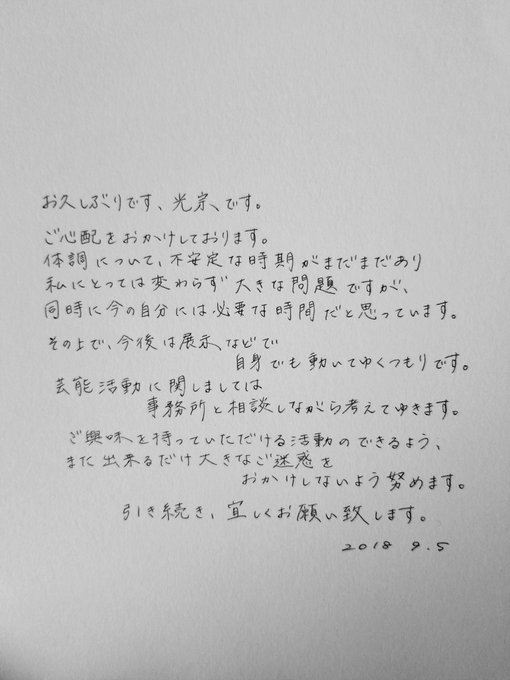 お久しぶりです、光宗、です。
ご心配をおかけしております。
体調について、不安定な時期がまだまだあり
私にとっては変わらず大きな問題ですが、
同時に今の自分には必要な時間だと思っています。
その上で、今後は展示、などで
自身でも動いてゆくつもりです。
芸能活動に関しましては
事務所と相談しながら考えてゆきます。
ご興味を持っていただける活動のできるよう、
また出来るだけ大きなご迷惑を
おかけしないよう努めます。
引き続き、宜しくお願い致します。
2018 9.5